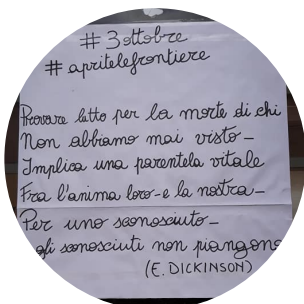 #3ottobre
#apritelefrontiere
Provare lutto per la morte di chi
Non abbiamo mai visto -
Implica una parentela vitale
Fra l'anima loro - e la nostra -
Per uno sconosciuto -
gli sconosciuti non piangono
(E. DICKINSON)